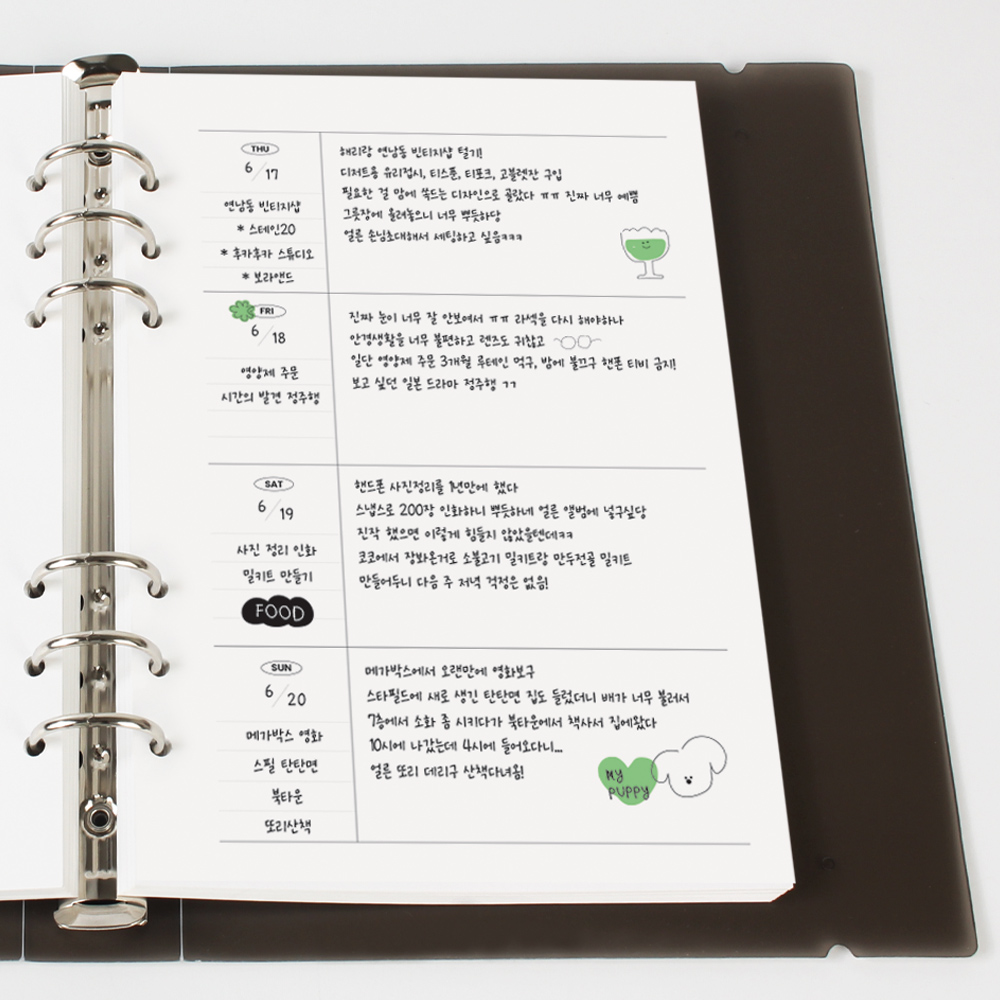 THU
6/17
연남동 빈티지샵
* 스테인20
* 후카후카 스튜디오
* 보라앤드
해리랑 연남동 빈티지샵 털기!
디저트용 유리접시, 티스푼, 티포크, 고블렛잔 구입
필요한 걸 맘에 쏙드는 디자인으로 골랐다 ㅠㅠ 진짜 너무 예쁨
그릇장에 올려놓으니 너무 뿌듯하당
얼른 손님초대해서 세팅하고 싶음ㅋㅋㅋ
FRI
6/18
영양제 주문
시간의 발견 정주행
진짜 눈이 너무 잘 안보여서 ㅠㅠ 라섹을 다시 해야하나
안경생활을 너무 불편하고 렌즈도 귀찮고
일단 영양제 주문 3개월 루테인 먹구, 밤에 불끄구 핸폰 티비 금지!
보고 싶던 일본 드라마 정주행 ㄱㄱ
SAT
6/19
사진 정리 인화
밀키트 만들기
FOOD
핸드폰 사진정리를 1년만에 했다
스냅스로 200장 인화하니 뿌듯하네 얼른 앨범에 넣구싶당
진작 했으면 이렇게 힘들지 않았을텐데ㅋㅋ
코코에서 장봐온거로 소불고기 밀키트랑 만두전골 밀키트
만들어두니 다음 주 저녁 걱정은 없음!
SUN
6/20
메가박스 영화
스필 탄탄면
북타운
또리산책
메가박스에서 오랜만에 영화보구
스타필드에 새로 생긴 탄탄면 집도 들렀더니 배가 너무 불러서
7층에서 소화 좀 시키다가 북타운에서 책사서 집에왔다
10시에 나갔는데 4시에 들어오다니...
얼른 또리 데리구 산책다녀옴!
MY
PUPPY